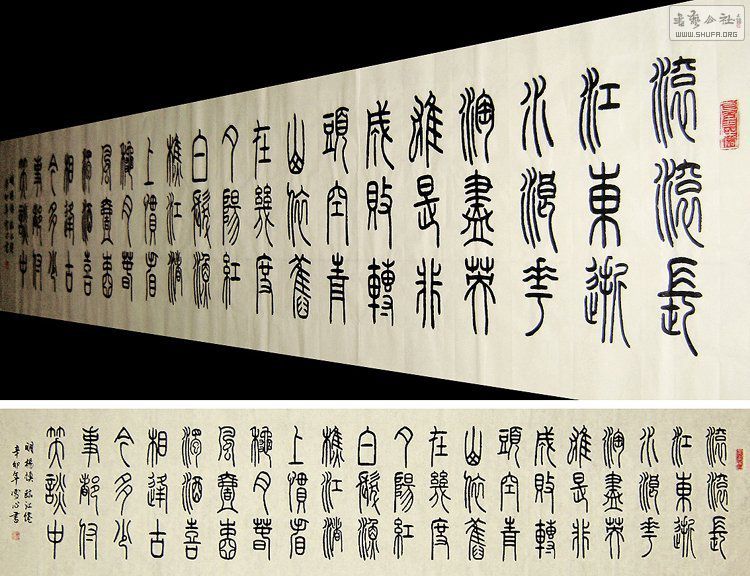 書藝公社
WWW.SHUFA.ORG
滾滾長
江東逝
水浪花
淘盡英
雄是非
成敗轉
頭空青
山依舊
在幾度
夕陽紅
白髮漁
樵江渚
上慣看
秋月春
風壹壺
濁酒喜
相逢古
今多少
事都付
笑談中
滾滾長
江東逝
水浪花
淘盡英
雄是非
成敗轉
頭空青
山依舊
在幾度
夕陽紅
白髮漁
樵江渚
上慣看
秋月春
風壹壺
濁酒喜
相逢古
今多少
事都付
笑談中
明楊慎臨江仙
辛卯年書